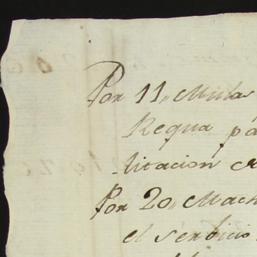 Por 11, Mulas
Requa pa
litacion de
Por 20, Mach
el serbicio